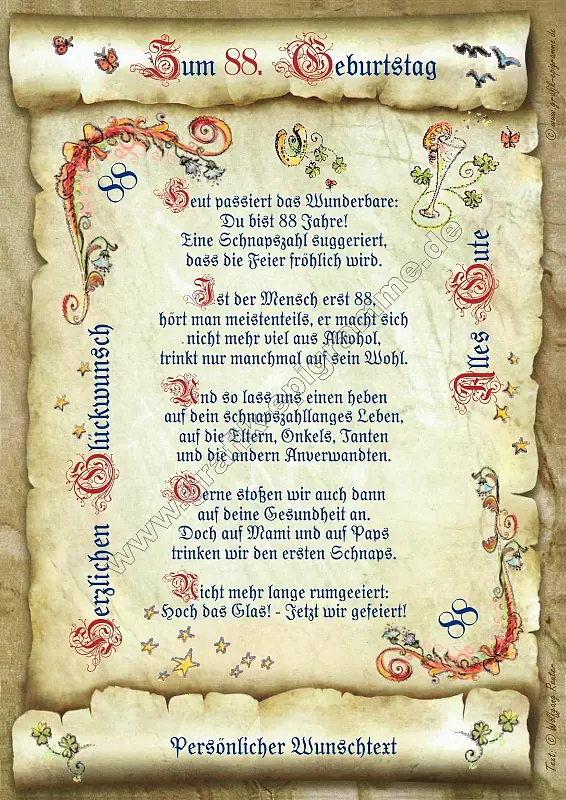 Zum 88. Geburtstag
© www.grafik-epigramme.de
88
Heut passiert das Wunderbare:
Du bist 88 Jahre!
Eine Schnapszahl suggeriert,
dass die Feier fröhlich wird.
Ist der Mensch erst 88,
hört man meistenteils, er macht sich
nicht mehr viel aus Alkohol,
trinkt nur manchmal auf sein Wohl.
Und so lass uns einen heben
auf dein schnapszahllanges Leben,
auf die Eltern, Onkels, Tanten
und die andern Anverwandten.
Gerne stoßen wir auch dann
auf deine Gesundheit an.
Doch auf Mami und auf Paps
trinken wir den ersten Schnaps.
Nicht mehr lange rumgeeiert:
Hoch das Glas! - Jetzt wir gefeiert!
Herzlichen Glückwunsch
Alles Gute
88
www.grafik-epigramme.de
Persönlicher Wunschtext
Text: © Wolfgang Reuter